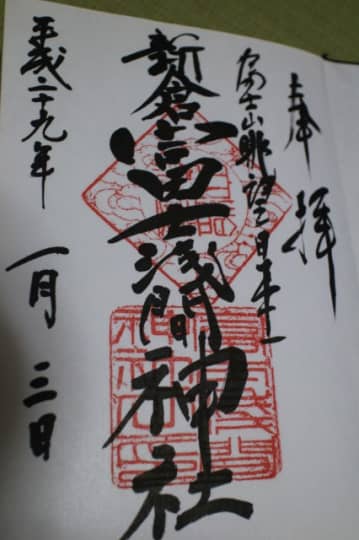 奉拝
富士山眺望日本一
新倉富士浅間神社
平成二十九年
一月三日